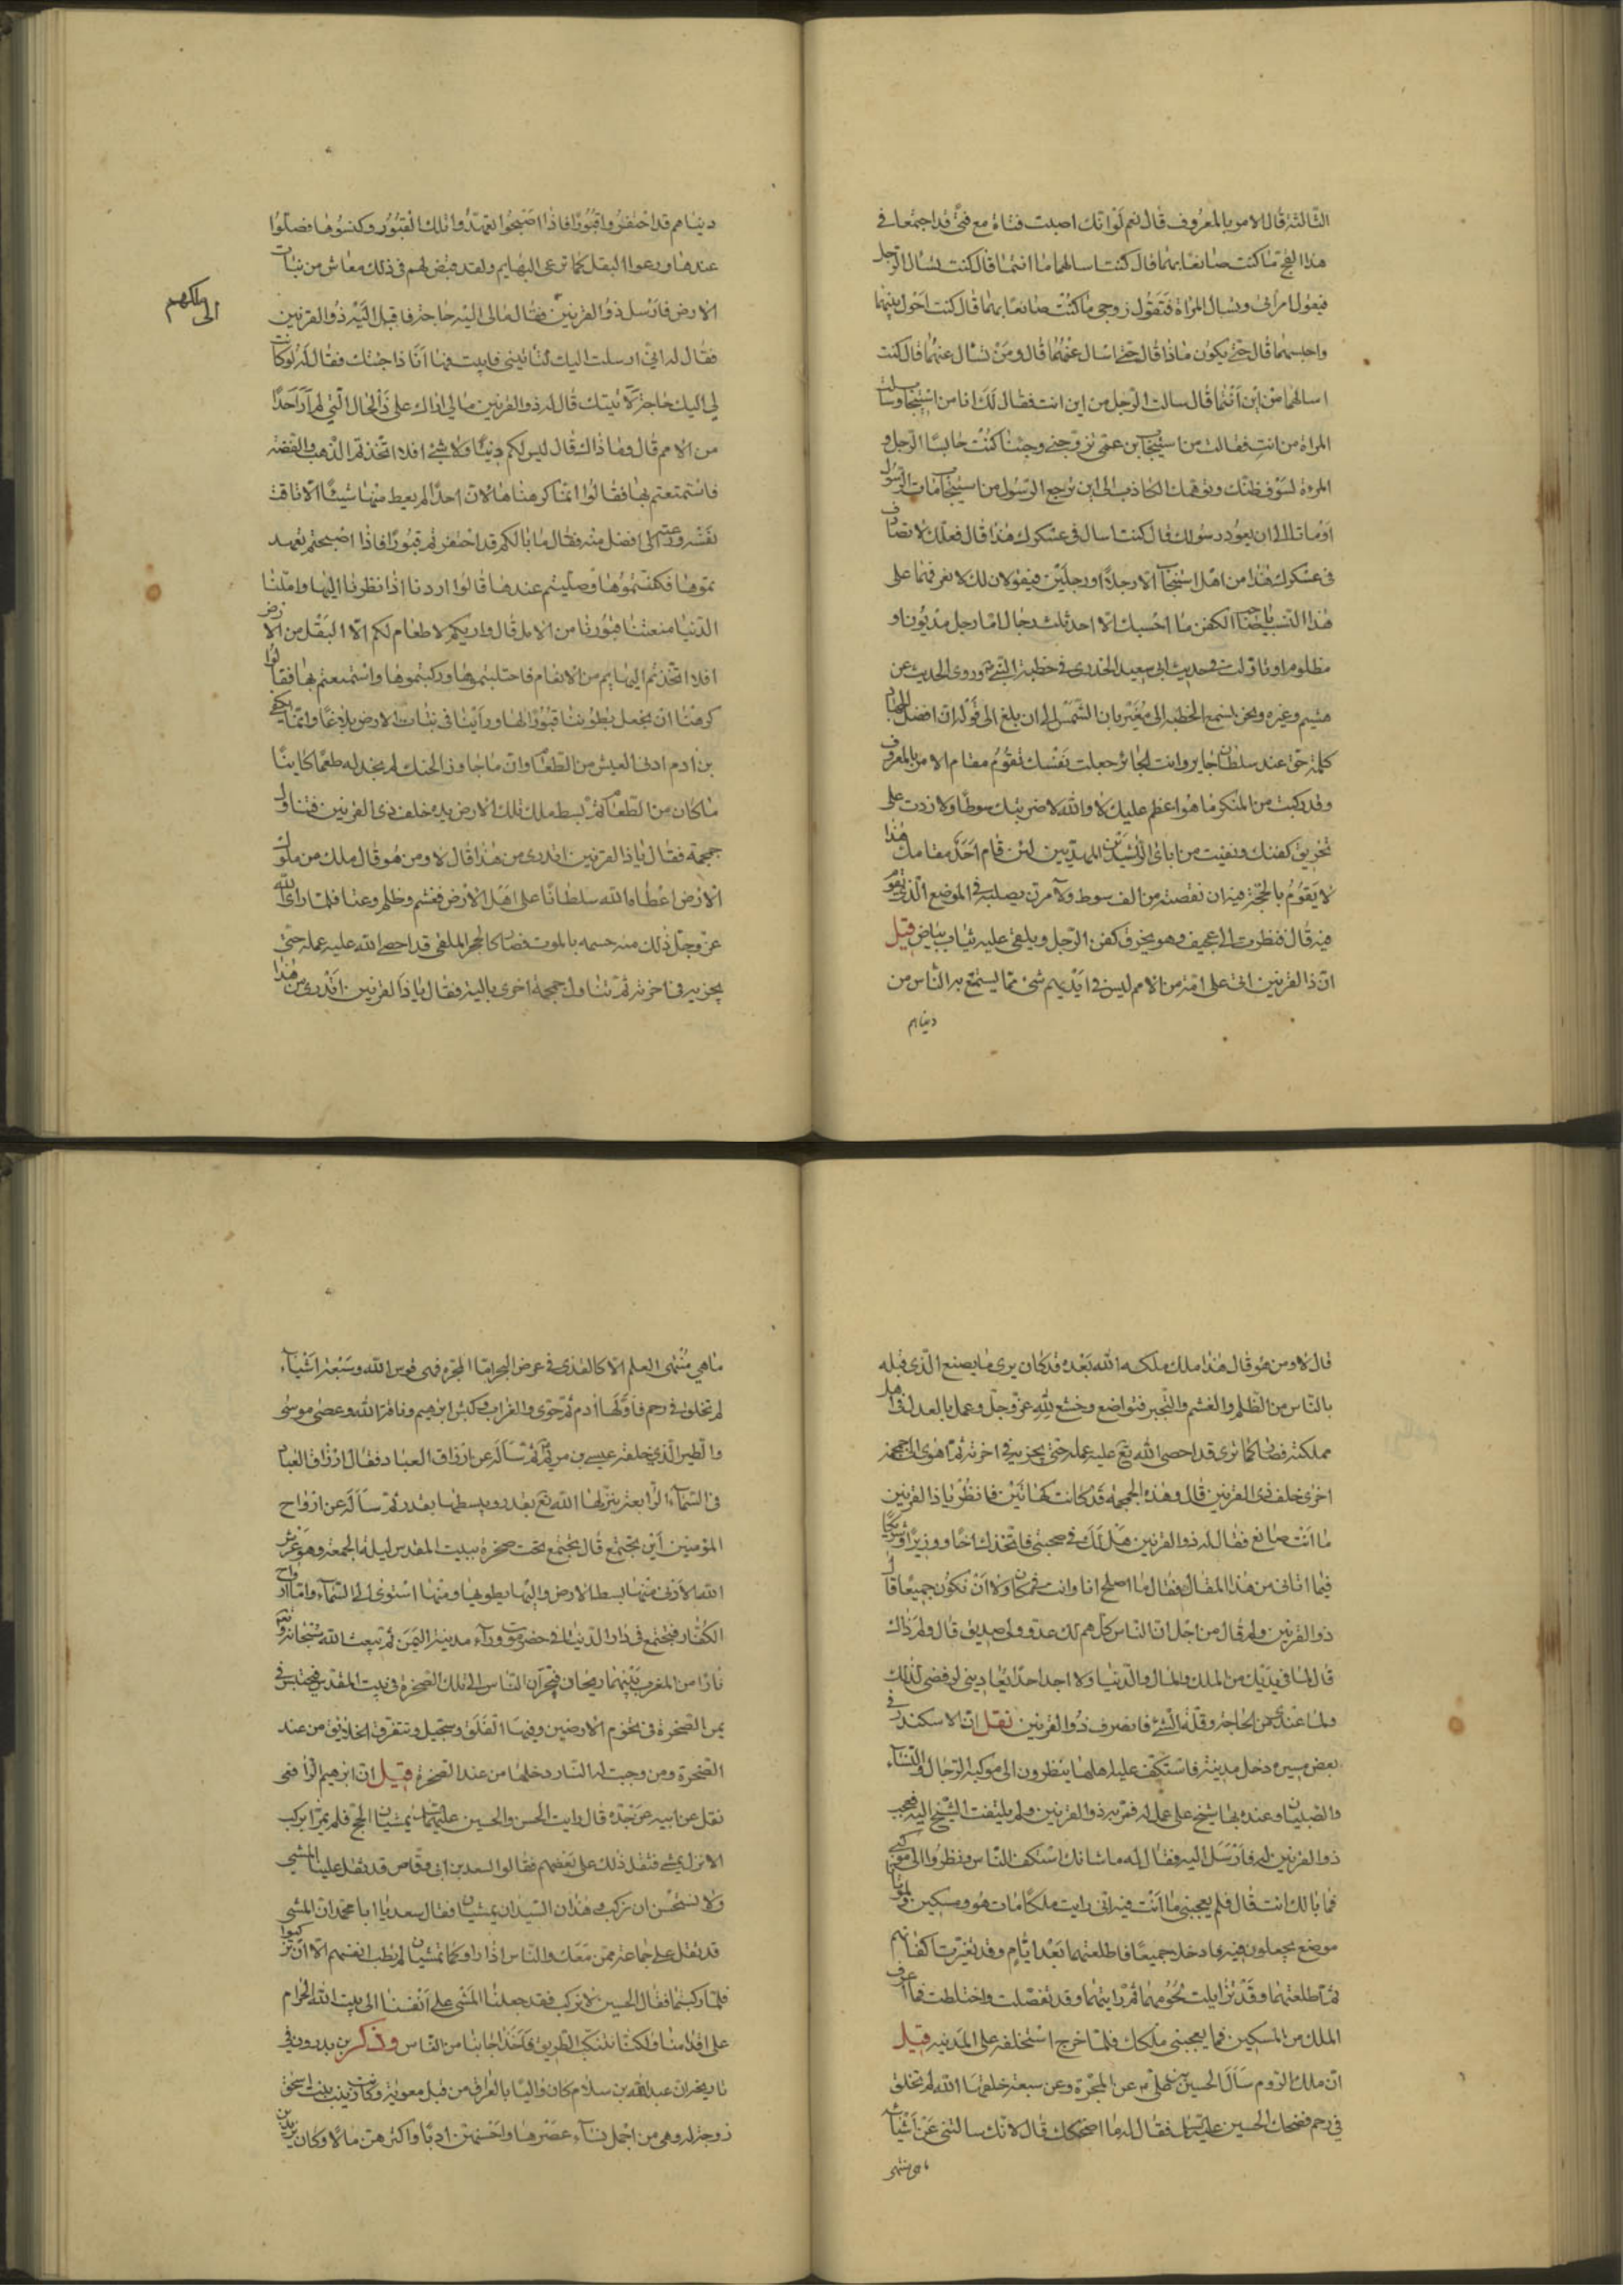 الثالثة قال الامر بالمعروف قال نعم لو انك اصبت فتاة مع فتى قد اجتمعا في
هذا الفج ما كنت صانعا بهما قال كنت اسالهما ما انتما قال كنت تسال الرجل
فيقول امراتي وتسال المراة فتقول زوجي ما كنت صانعا بهما قال كنت احول بينهما
واحبسهما قال حتى يكون ماذا قال حتى اسال عنهما قال ومن تسال عنهما قال كنت
اسالهما من اين انتما قال سالت الرجل من اين انت فقال لك انا من اسبيجاب وسالت
المراة من انت فقالت من اسبيجاب ابن عمي تزوجني وجئنا كنت حابسا الرجل و
المرءة لسوء ظنك وتوهمك الكاذب الى ان يرجع الرسول من اسبيجاب مات الرسول
او ماتا الى ان يعود رسولك قال كنت اسال في عسكرك هذا قال فلعلك لا تصادف
في عسكرك هذا من اهل اسبيجاب الا رجلا او رجلين فيقولان لك لا نعرفهما على
هذا النسب يا صاحب الكفن ما احسبك الا احد ثلث رجال اما رجل مديون او
مظلوم او تاولت في حديث ابي سعيد الخدري في خطبة النبي ص وروى الحديث عن
هشيم وغيره ونحن نسمع الخطبة الى مغيربان الشمس الى ان بلغ الى قوله ان افضل الجهاد
كلمة حق عند سلطان جاير وانت لجائر جعلت نفسك تقوم مقام الامر بالمعروف
وقد ركبت من المنكر ما هو اعظم عليك لا والله لا ضربتك سوطا ولا زدت على
تخريق كفنك ونفيت من ابائي الراشدين المهديين لئن قام احد مقامك هذا
لا يقوم بالحجة فيه ان نقصته من الف سوط ولآمرن بصلبه في الموضع الذي يقوم
فيه قال فنظرت الى عجيف وهو يخرق كفن الرجل ويلقي عليه ثياب بياض قيل
ان ذا القرنين اتى على امة من الامم ليس في ايديهم شئ مما يستمتع به الناس من
دنياهم
دنياهم قد احتفروا قبورا فاذا اصبحوا تعهدوا تلك القبور وكنسوها وصلوا
عندها ورعوا البقل كما ترعى البهايم ولقد قيض لهم في ذلك معاش من نبات
الارض فارسل ذو القرنين فقال مالى اليه حاجة فاقبل اليه ذو القرنين
الى ملكهم
فقال له اني ارسلت اليك لتاتيني فابيت فها انا ذا جئتك فقال له لو كانت
لي اليك حاجة لاتيتك قال له ذو القرنين ما لي اراك على ذا الحال التي لم ار احدا
من الامم قال وما ذاك قال ليس لكم دنيا ولا شئ افلا اتخذتم الذهب والفضة
فاستمتعتم بها فقالوا انما كرهناها لان احدا لم يعط منها شيئا الا تاقت
نفسه ودعته الى افضل منه فقال ما بالكم قد احتفرتم قبورا فاذا اصبحتم تعهد
تموها فكنستموها وصليتم عندها قالوا اردنا اذا نظرنا اليها واملنا
الدنيا منعتنا قبورنا من الامل قال واريكم لا طعام لكم الا البقل من الارض
افلا اتخذتم البهايم من الانعام فاحتلبتموها وركبتموها واستمتعتم بها فقالوا
كرهنا ان نجعل بطوننا قبورا لها وراينا في نبات الارض بلاغا وانما يكفي
بن ادم ادنى العيش من الطعام وان ما جاوز الحنك لم نجد له طعما كاينا
ما كان من الطعام ثم بسط ملك تلك الارض يده خلف ذي القرنين فتناول
جمجمة فقال يا ذا القرنين اتدري من هذا قال لا ومن هو قال ملك من ملوك
الارض اعطاه الله سلطانا على اهل الارض فغشم وظلم وعتا فلما راى الله
عز وجل ذلك منه حسمه بالموت فصار كالحجر الملقى قد احصى الله عليه عمله حتى
يجزيه في اخرته ثم تناول جمجمة اخرى بالية فقال يا ذا القرنين اتدري من هذا
قال لا ومن هو قال هذا ملك ملكه الله بعده قد كان يرى ما يصنع الذي قبله
بالناس من الظلم والغشم والتجبر فتواضع وخشع لله عز وجل وعمل بالعدل في اهل
مملكته فصار كما ترى قد احصى الله تع عليه عمله حتى يجزيه في اخرته ثم اهوى الى جمجمة
اخرى خلف ذي القرنين قال وهذه الجمجمة قد كانت كهاتين فانظر يا ذا القرنين
ما انت صانع فقال له ذو القرنين هل لك في صحبتي فاتخذك اخا ووزيرا وشريكا
فيما اتاني من هذا المقال فقال ما اصلح انا وانت في مكان ولا ان نكون جميعا قال
ذو القرنين ولم قال من اجل ان الناس كلهم لك عدو ولي صديق قال ولم ذاك
قال لما في يديك من الملك والمال والدنيا ولا اجد احدا يعاديني لرفضي لذلك
ولما عندي من الحاجة وقلة الشئ فانصرف ذو القرنين نقل ان الاسكندر في
بعض سيره دخل مدينة فاستكف عليه اهلها ينظرون الى موكبه الرجال والنساء
والصبيان وعنده بها شيخ على عمل له فمر به ذو القرنين ولم يلتفت الشيخ اليه فعجب
ذو القرنين له فارسل اليه فقال له ما شانك استكف الناس ونظروا الى موكبي
فما بالك انت قال فلم يعجبني ما انت فيه اني رايت ملكا مات هو ومسكين ولموتانا
موضع يجعلون فيه فادخلا جميعا فاطلعتهما بعد ايام وقد تغيرت اكفانهم
ثم اطلعتهما وقد تزايلت لحومهما ثم رايتهما وقد تفصلت واختلطت فما اعرف
الملك من المسكين فما يعجبني ملكك فلما خرج استخلفه على المدينة قيل
ان ملك الروم سال الحسين بن علي ع عن المجرة وعن سبعة خلقها الله لم تخلق
في رحم فضحك الحسين عليه السلم فقال له ما اضحكك قال لانك سالتني عن اشياء
ما هي منتهى
ما هي منتهى العلم الا كالقذى في عرض البحر اما المجرة فهي قوس الله وسبعة اشياء
لم تخلق في رحم فاولها ادم ثم حوى والغراب وكبش ابرهيم وناقة الله وعصى موسى
والطير الذي خلقه عيسى بن مريم ثم ساله عن ارزاق العباد فقال ارزاق العباد
في السماء الرابعة ينزلها الله تع بقدر ويبسطها بقدر ثم ساله عن ارواح
المؤمنين اين تجتمع قال تجتمع تحت صخرة ببيت المقدس ليلة الجمعة وهو عرش
الله الادنى منها بسط الارض واليها يطويها ومنها استوى الى السماء واما ارواح
الكفار فتجتمع في دار الدنيا في حضرموت وراء مدينة اليمن ثم تبعث الله سبحانه وتع
نارا من المغرب بينهما ريحان فيحشران الناس الى تلك الصخرة في بيت المقدس فتحبس في
يمن الصخرة في تخوم الارضين وفيها الفلق وسجيل وتتفرق الخلايق من عند
الصخرة ومن وجبت له النار دخلها من عند الصخرة قيل ان ابرهيم الرافعي
نقل عن ابيه عن جده قال رايت الحسن والحسين عليهما السلم يمشيان الى الحج فلم يمرا براكب
الا نزل يمشي فثقل ذلك على بعضهم فقالوا لسعد بن ابي وقاص قد ثقل علينا المشي
ولا نستحسن ان نركب وهذان السيدان يمشيان فقال سعد يا ابا محمد ان المشي
قد ثقل على جماعة ممن معك والناس اذا راوكما تمشيان لم تطب انفسهم الا ان تركبوا
فلما ركبتما فقال الحسين لا نركب فقد جعلنا المشي على انفسنا الى بيت الله الحرام
على اقدامنا ولكننا نتنكب الطريق فاخذا جانبا من الناس وذكر بن بدرون في
تاريخه ان عبد الله بن سلام كان واليا بالعراق من قبل معوية وكانت زينب بنت اسحق
زوجة له وهي من اجمل نساء عصرها واحسنهن ادبا واكثرهن مالا وكان يزيد بن